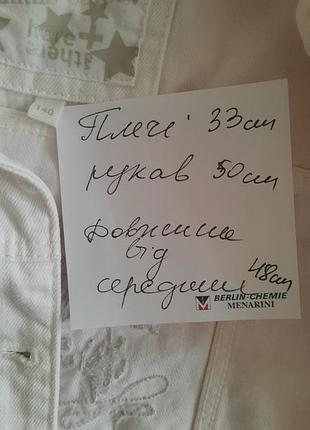 here+
there
140
Плечі 33см
рукав 50см
довжина
від
середини 48см
BERLIN-CHEMIE
MENARINI